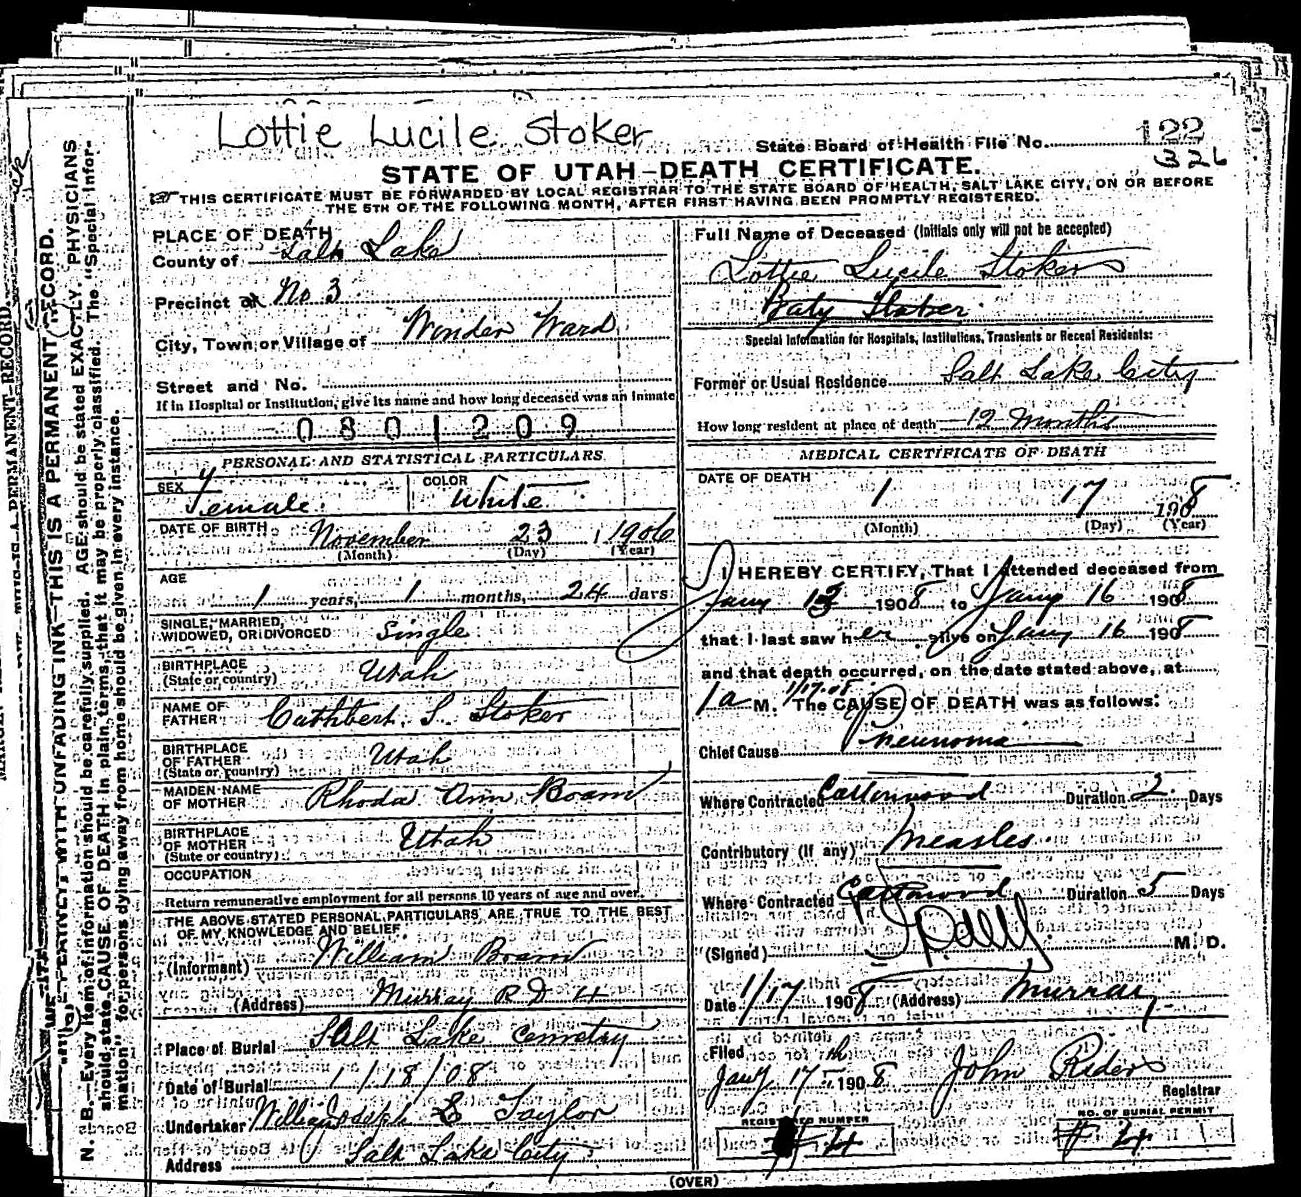 Lottie Lucile Stoker
State Board of Health File No. 122
326
STATE OF UTAH—DEATH CERTIFICATE.
THIS CERTIFICATE MUST BE FORWARDED BY LOCAL REGISTRAR TO THE STATE BOARD OF HEALTH, SALT LAKE CITY, ON OR BEFORE
THE 5TH OF THE FOLLOWING MONTH, AFTER FIRST HAVING BEEN PROMPTLY REGISTERED.
PLACE OF DEATH
County of Salt Lake
Precinct No 3
City, Town or Village of Winder Ward
Street and No.
If in Hospital or Institution, give its name and how long deceased was an inmate
0801209
PERSONAL AND STATISTICAL PARTICULARS
SEX Female
COLOR White
DATE OF BIRTH November 23, 1906
(Month) (Day) (Year)
AGE
1 years, 1 months, 24 days
SINGLE, MARRIED,
WIDOWED, OR DIVORCED Single
BIRTHPLACE
(State or country) Utah
NAME OF
FATHER Cuthbert S. Stoker
BIRTHPLACE
OF FATHER
(State or country) Utah
MAIDEN NAME
OF MOTHER Rhoda Ann Boam
BIRTHPLACE
OF MOTHER
(State or country) Utah
OCCUPATION
Return remunerative employment for all persons 10 years of age and over.
THE ABOVE STATED PERSONAL PARTICULARS ARE TRUE TO THE BEST
OF MY KNOWLEDGE AND BELIEF
(Informant) William Boam
(Address) Murray R D 4
Place of Burial Salt Lake Cemetry
Date of Burial 1/18/08
Undertaker Joseph E Taylor
Address Salt Lake City
Full Name of Deceased (Initials only will not be accepted)
Lottie Lucile Stoker
Baby Stoker
Special Information for Hospitals, Institutions, Transients or Recent Residents:
Former or Usual Residence Salt Lake City
How long resident at place of death 12 Months
MEDICAL CERTIFICATE OF DEATH
DATE OF DEATH
1 17 1908
(Month) (Day) (Year)
I HEREBY CERTIFY, That I attended deceased from
Jany 13 1908 to Jany 16 1908
that I last saw her alive on Jany 16 1908
and that death occurred, on the date stated above, at
1 a M. 1/17-08 The CAUSE OF DEATH was as follows:
Chief Cause Pneunoma
Where Contracted Cottonwood Duration 2 Days
Contributory (If any) Measles
Where Contracted Cottonwood Duration 5 Days
(Signed) M. D.
Date 1/17 1908 (Address) Murray
Filed
Jany 17th 1908 John Rider
Registrar
REGISTERED NUMBER
# 4
NO. OF BURIAL PERMIT
# 4
(OVER)
N. B.—Every item of information should be carefully supplied. AGE should be stated EXACTLY. PHYSICIANS
should state CAUSE OF DEATH in plain terms, that it may be properly classified. The "Special Infor-
mation" for persons dying away from home should be given in every instance.
WRITE PLAINLY WITH UNFADING INK—THIS IS A PERMANENT RECORD.